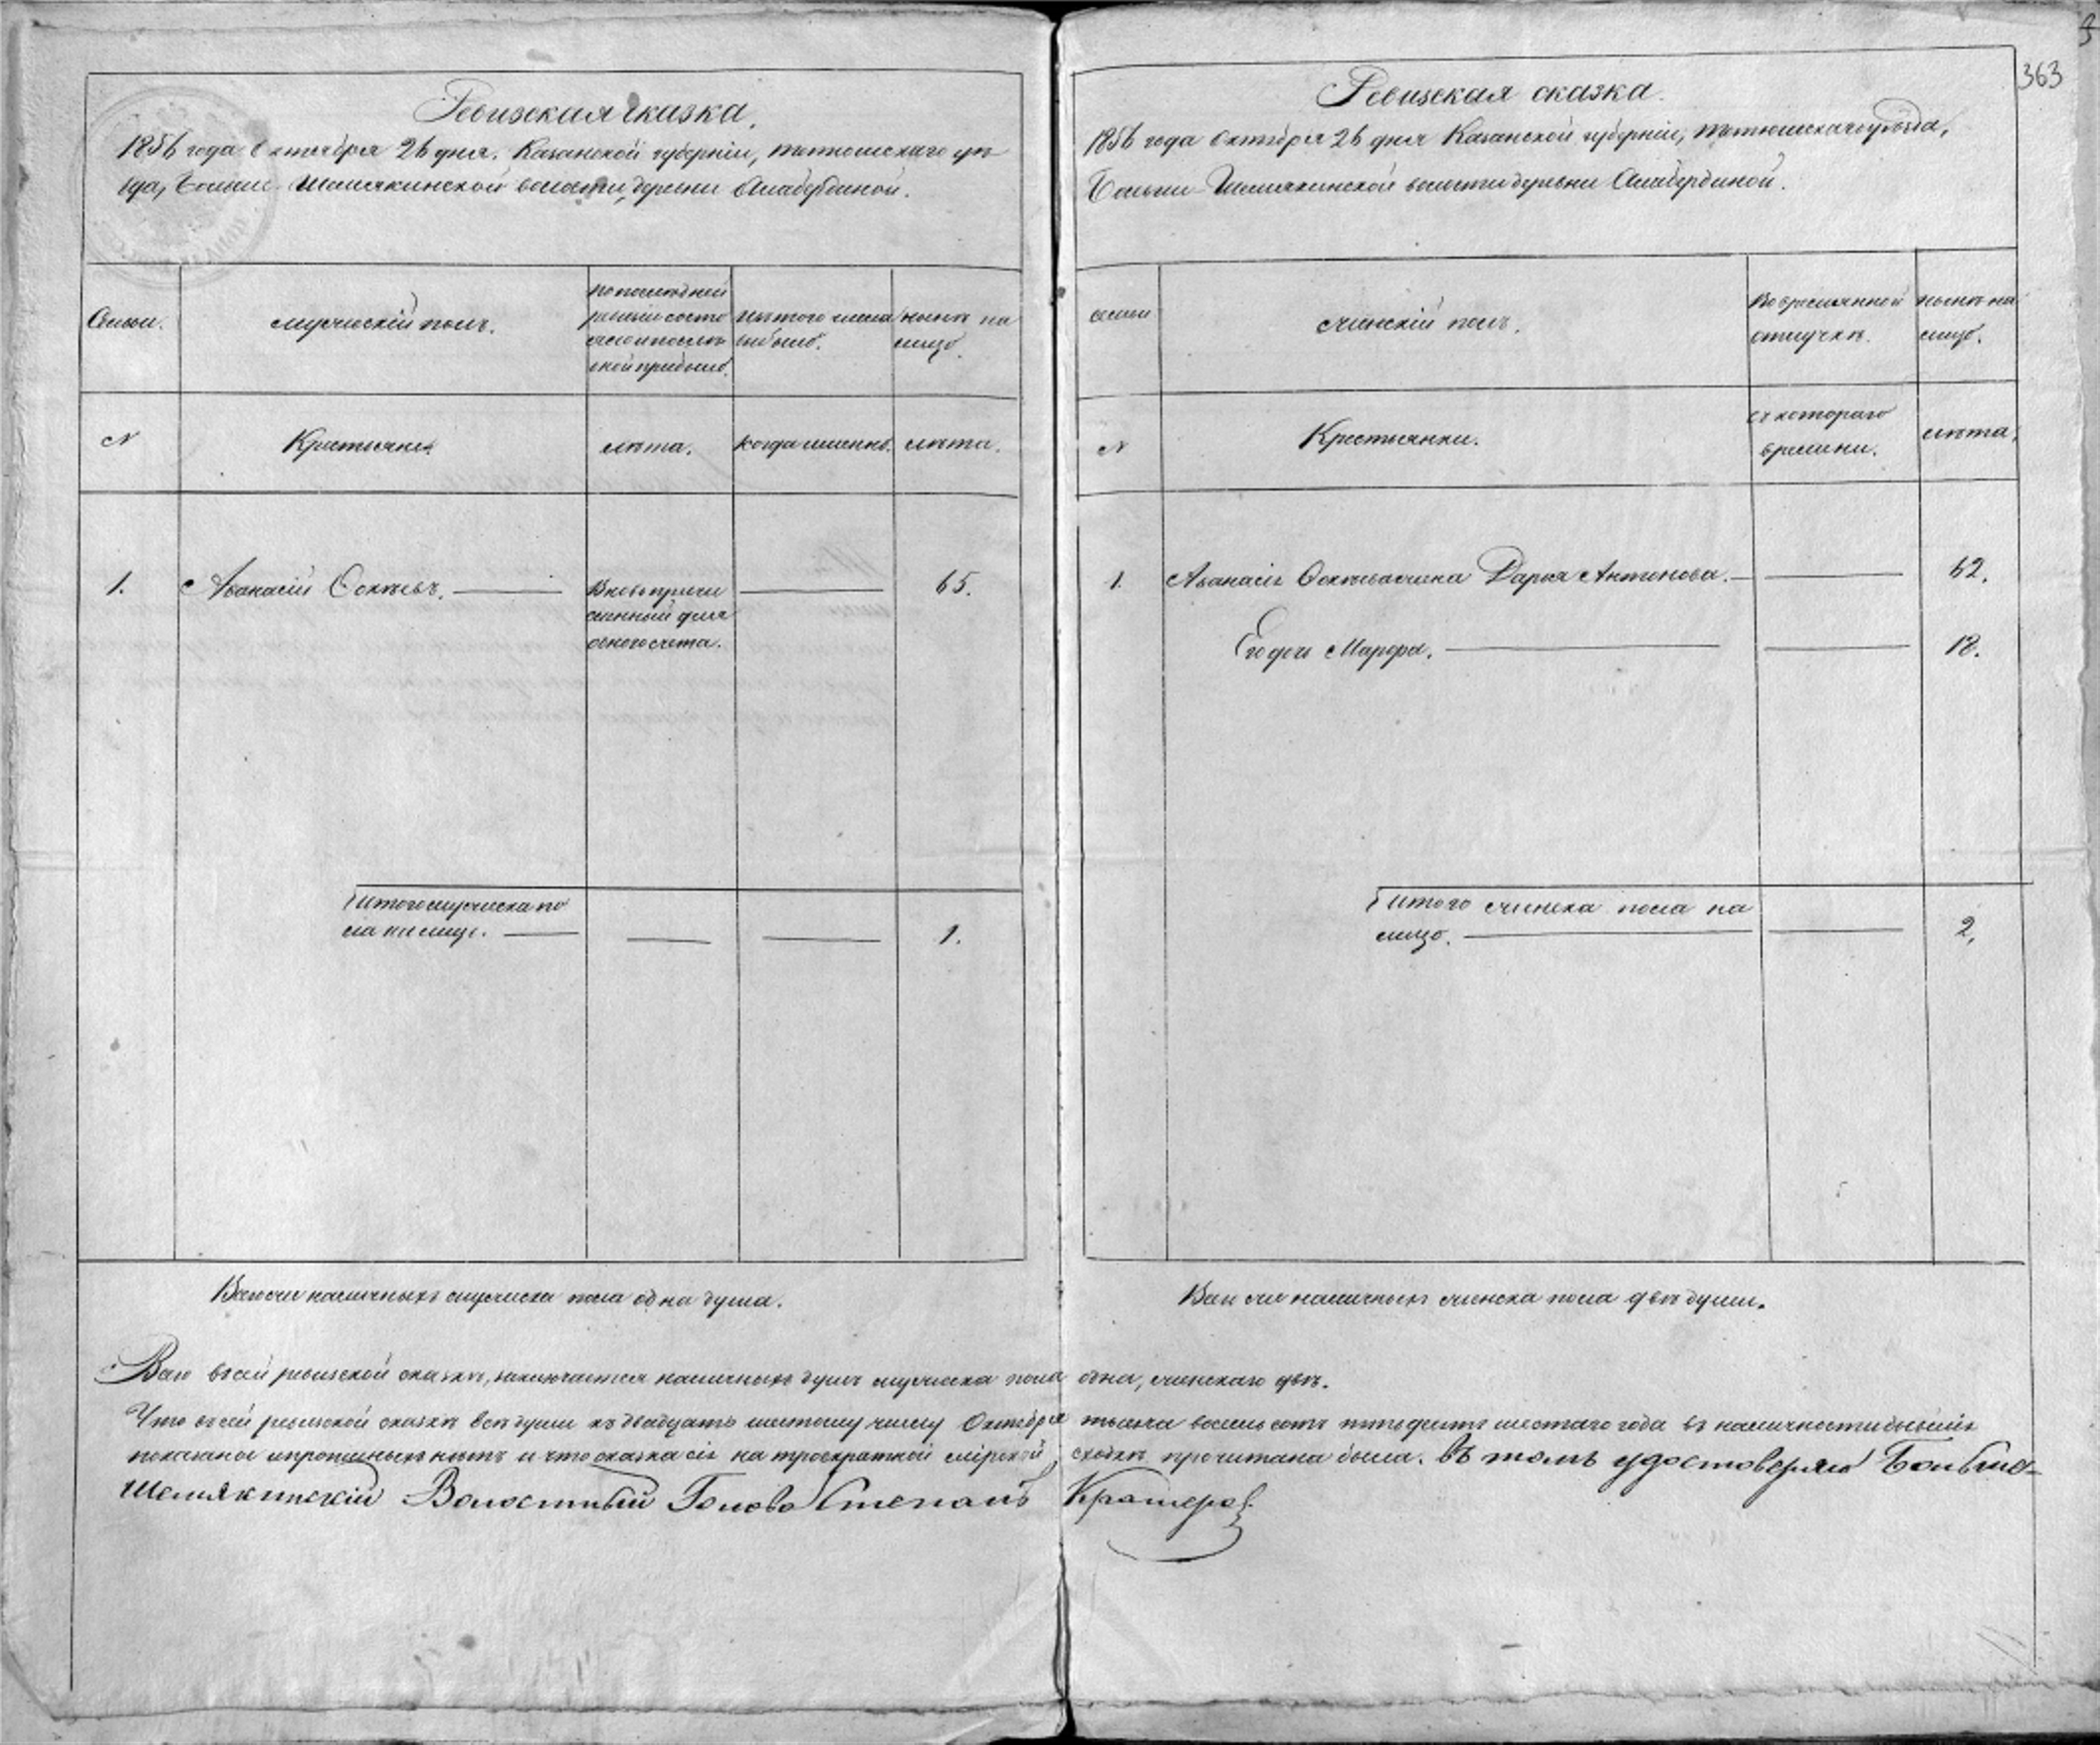 363
Ревизская сказка.
1856 года Октября 26 дня. Казанской губерніи, тетюшскаго уѣ
зда, Больше-Шемякинской волости, деревни Алабердиной.
Семьи.
мужескій полъ.
по последней
ревизіи состо
яло и послѣ
оной прибыло.
изъ того числа
выбыло.
нынѣ на
лицо.
N
Крестьяне.
лѣта.
когда именно.
лѣта.
1.
Аѳанасій Осиповъ.
Вновь причи
сленный для
одного счета.
65.
Итого мужеска по
ла на лицо.
1.
Всего наличныхъ мужеска пола одна душа.
Ревизская сказка.
1856 года Октября 26 дня Казанской губерніи, тетюшскаго уѣзда,
Больше-Шемякинской волости деревни Алабердиной.
семьи
женскій полъ.
Во времянной
отлучкѣ.
нынѣ на
лицо.
N
Крестьянки.
съ котораго
времени.
лѣта.
1.
Аѳанасія жена Дарья Антонова.
62.
Его дочь Марфа.
18.
Итого женска пола на
лицо.
2.
наличныхъ женска пола двѣ души.
Всего въ сей ревизской сказкѣ, заключается наличныхъ душъ мужеска пола одна, женскаго двѣ.
Что въ сей ревизской сказкѣ всѣ души къ двадцать шестому числу Октября тысяча восемь сотъ пятьдесятъ шестаго года въ наличности бывшія
показаны и прописныхъ нѣтъ и что сказка сія на троекратной мірской сходкѣ прочитана была. Въ томъ удостоверяю Больше-
Шемякинскій Волостный Голова Степанъ